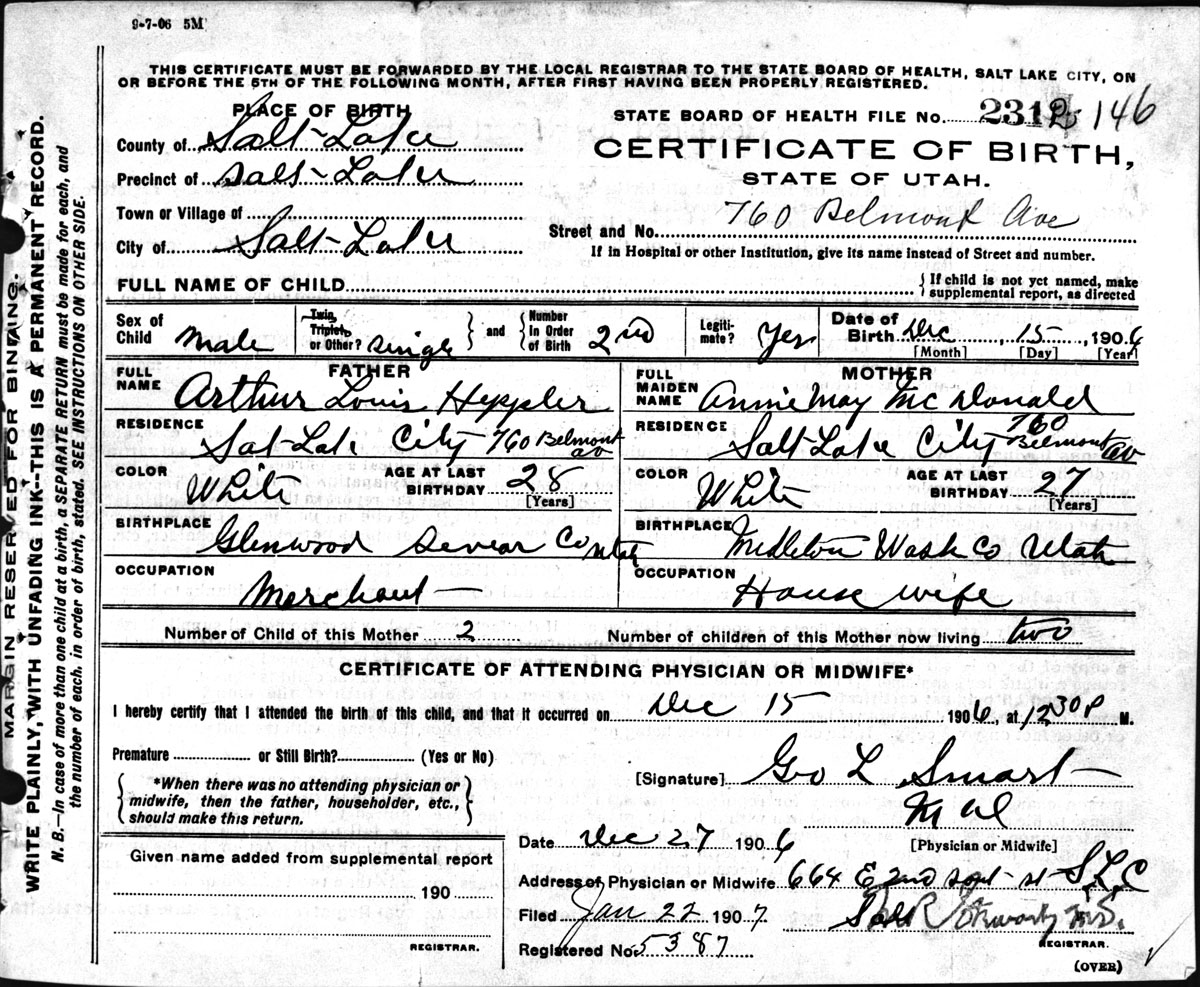 9-7-06 5M
THIS CERTIFICATE MUST BE FORWARDED BY THE LOCAL REGISTRAR TO THE STATE BOARD OF HEALTH, SALT LAKE CITY, ON
OR BEFORE THE 5TH OF THE FOLLOWING MONTH, AFTER FIRST HAVING BEEN PROPERLY REGISTERED.
PLACE OF BIRTH
County of Salt-Lake
Precinct of Salt-Lake
Town or Village of
City of Salt-Lake
STATE BOARD OF HEALTH FILE No. 146
CERTIFICATE OF BIRTH,
STATE OF UTAH.
Street and No. 760 Belmont Ave
If in Hospital or other Institution, give its name instead of Street and number.
FULL NAME OF CHILD
{If child is not yet named, make
supplemental report, as directed
Sex of Child Male
Twin, Triplet, or Other? Single } and { Number In Order of Birth 2nd
Legiti-mate? Yes
Date of Birth Dec 15, 1906
[Month] [Day] [Year]
FATHER
FULL NAME Arthur Louis Heppler
RESIDENCE Sat-Lake City 760 Belmont av
COLOR White
AGE AT LAST BIRTHDAY 28
[Years]
BIRTHPLACE Glenwood Sevear Co Utah
OCCUPATION Merchant
MOTHER
FULL MAIDEN NAME Annie May McDonald
RESIDENCE Salt-Lake City 760 Belmont av
COLOR White
AGE AT LAST BIRTHDAY 27
[Years]
BIRTHPLACE Midleton Wash Co Utah
OCCUPATION House wife
Number of Child of this Mother 2
Number of children of this Mother now living two
CERTIFICATE OF ATTENDING PHYSICIAN OR MIDWIFE*
I hereby certify that I attended the birth of this child, and that it occurred on Dec 15 1906, at 12 30 P M.
Premature or Still Birth? (Yes or No)
{*When there was no attending physician or
midwife, then the father, householder, etc.,
should make this return.}
[Signature] Geo L Smart
M D
[Physician or Midwife]
Date Dec 27 1906
Address of Physician or Midwife 664 E 2nd South st S.L.C
Filed Jan 22 1907
Registered No. 5387
REGISTRAR.
(OVER)
Given name added from supplemental report
190
REGISTRAR.
MARGIN RESERVED FOR BINDING.
WRITE PLAINLY, WITH UNFADING INK--THIS IS A PERMANENT RECORD.
N. B.—In case of more than one child at a birth, a SEPARATE RETURN must be made for each, and
the number of each, in order of birth, stated. SEE INSTRUCTIONS ON OTHER SIDE.